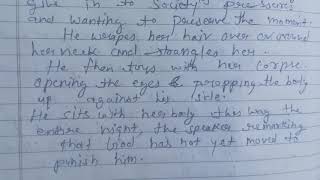 give in to Society pressures
and wanting to preserve the moment.
He wrapes her hair over around
her neck and strangles her.
He then toys with her corpse
opening the eyes & propping the body
up against his side.
He sits with her body this way the
entire night, the speaker remarking
that God has not yet moved to
punish him.